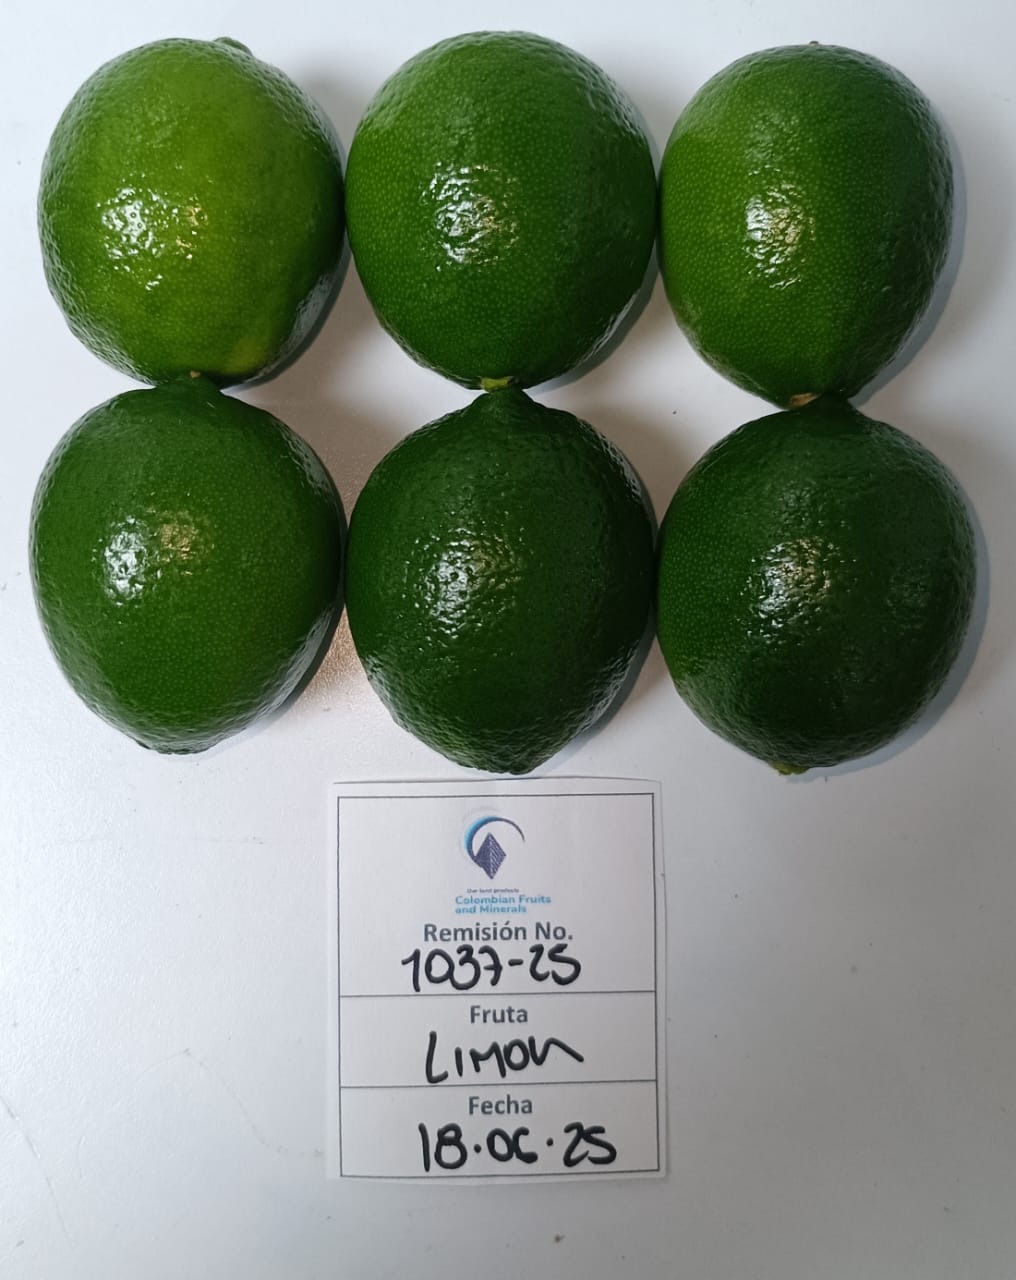 Our land products
Colombian Fruits
and Minerals
Remisión No.
1037-25
Fruta
LIMON
Fecha
18.06.25